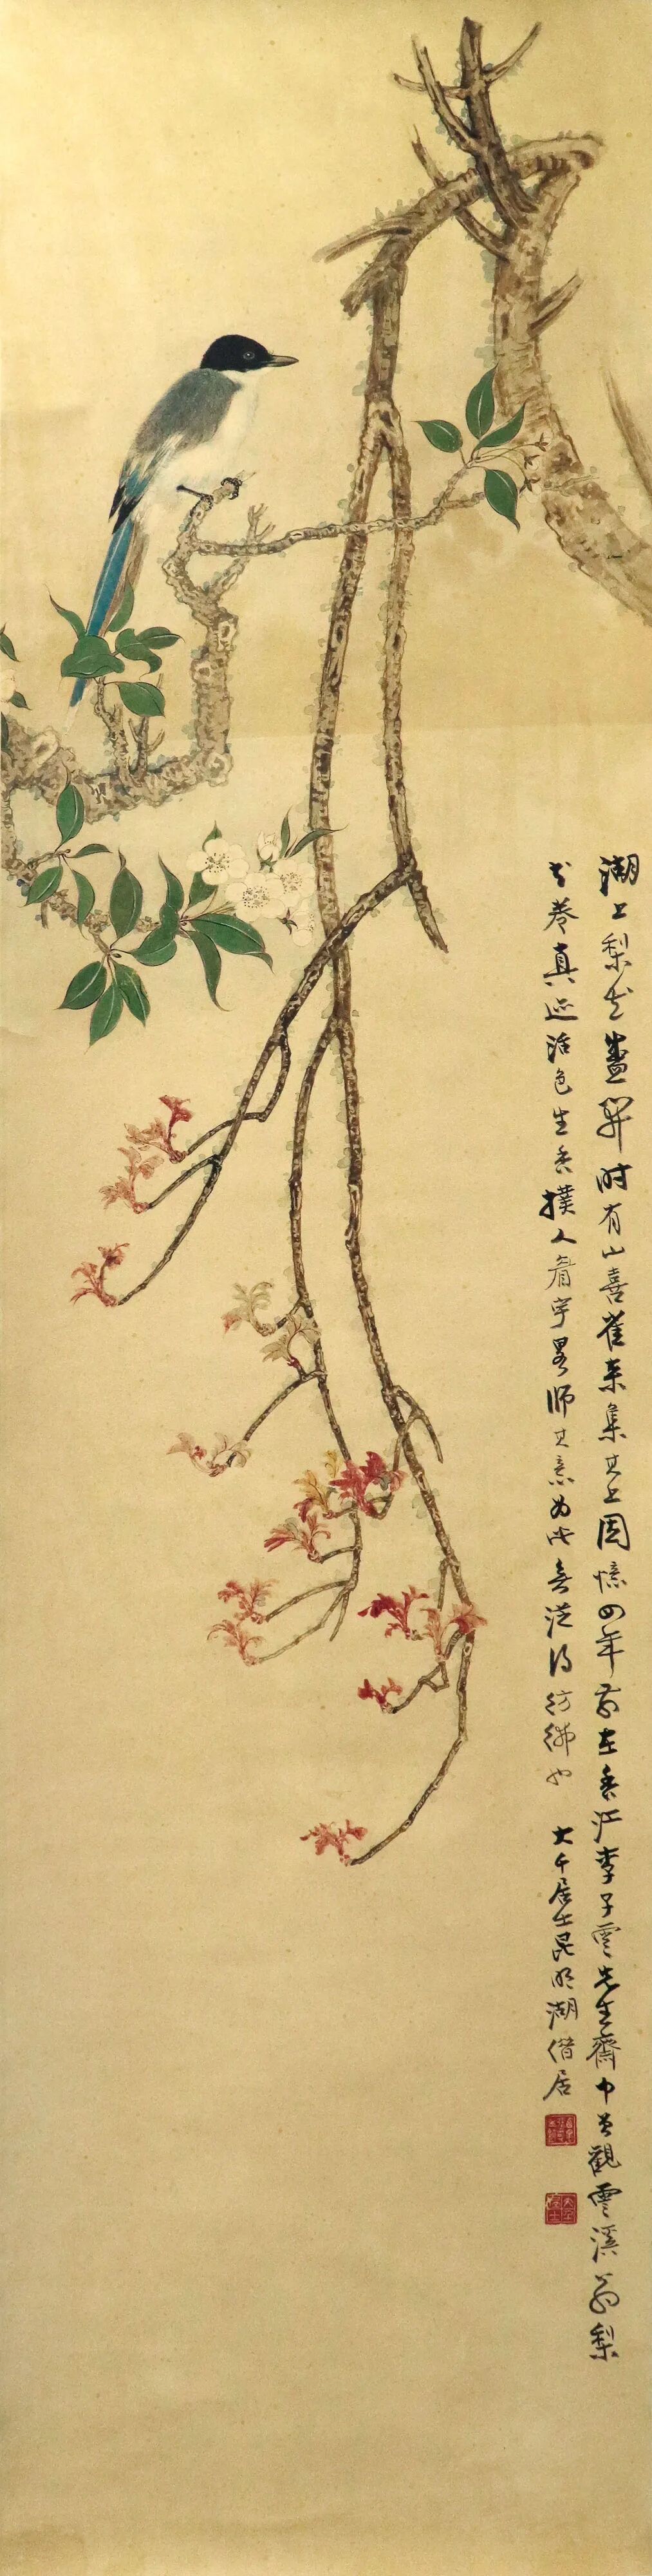 湖上梨花盛開時有山喜雀來集其上因憶四年前在香江李子雲先生齋中曾觀雲溪翁梨
花卷真迹活色生香撲人眉宇畧師其意為此無從得彷彿也　大千居士昆明湖借居